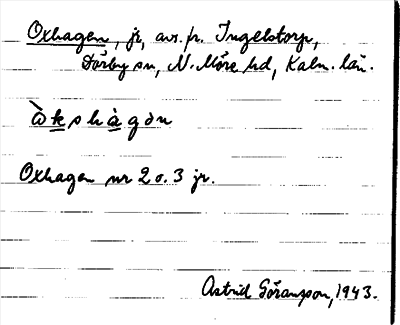 Oxhagen, jr, avs. fr. Ingelstorp,
Dörby sn, N. Möre hd, Kalm. län.
ὼkshàgən
Oxhagen nr 2 o. 3 jr.
Astrid Göranson, 1943.